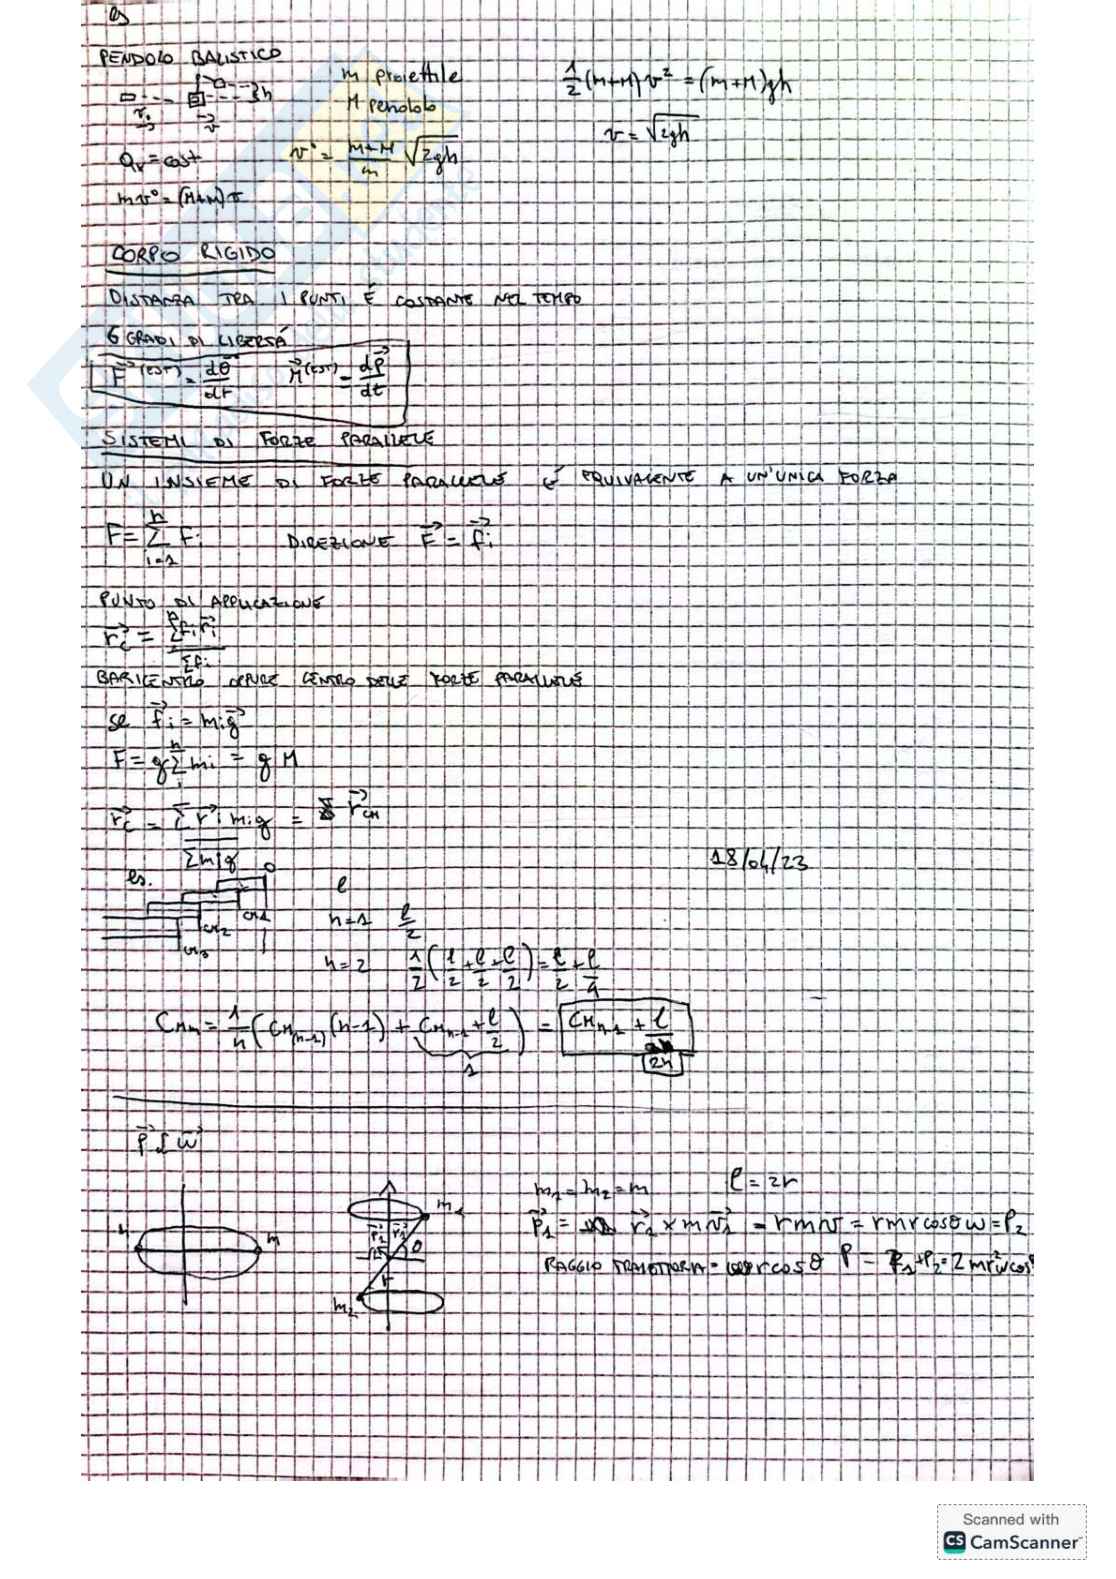 es
PENDOLO BALISTICO
h
m proiettile
M pendolo
½(m+M)v² = (m+M)gh
v = √2gh
Qx = cost
v° = (m+M)/m √2gh
mv° = (M+m)v
CORPO RIGIDO
DISTANZA TRA I PUNTI É COSTANTE NEL TEMPO
6 GRADI DI LIBERTÁ
F⃗ (EST) = dQ⃗/dt M⃗ (EST) = dP⃗/dt
SISTEMI DI FORZE PARALLELE
UN INSIEME DI FORZE PARALLELE É EQUIVALENTE A UN'UNICA FORZA
F = Σ fi
n
i=1
DIREZIONE F⃗ = f⃗i
PUNTO DI APPLICAZIONE
r⃗c = Σfi r⃗i / Σfi
BARICENTRO OPPURE CENTRO DELLE FORZE PARALLELE
se f⃗i = mi g⃗
F = g Σ mi = g M
r⃗c = Σ r⃗i mi g / Σ mi g = r⃗CM
18/04/23
es.
0
CM1
CM2
CM3
l
n=1 l/2
n=2 1/2 (l/2 + l/2 + l/2) = l/2 + l/4
CMn = 1/n (CM(n-1) (n-1) + CMn-1 + l/2) = CMn-1 + l/2n
1
P⃗ ∦ ω⃗
m
m1
m2
θ
r
m1 = m2 = m
l = 2r
P⃗1 = r⃗1 × m v⃗1 = rmv = rmr cosθ ω = P2
RAGGIO TRAIETTORIA = r cos θ
P = P1 + P2 = 2mr²ω cosθ
Scanned with
CS CamScanner